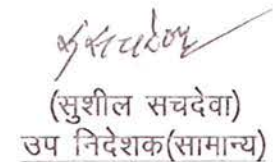 (सुशील सचदेवा)
उप निदेशक(सामान्य)